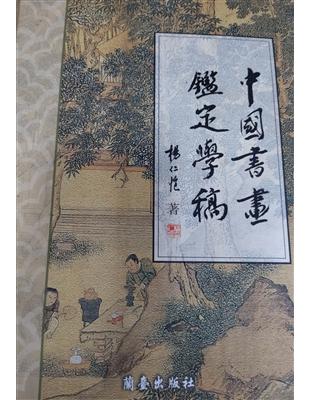 中國書畫
鑑定學稿
楊仁愷 著
蘭臺出版社